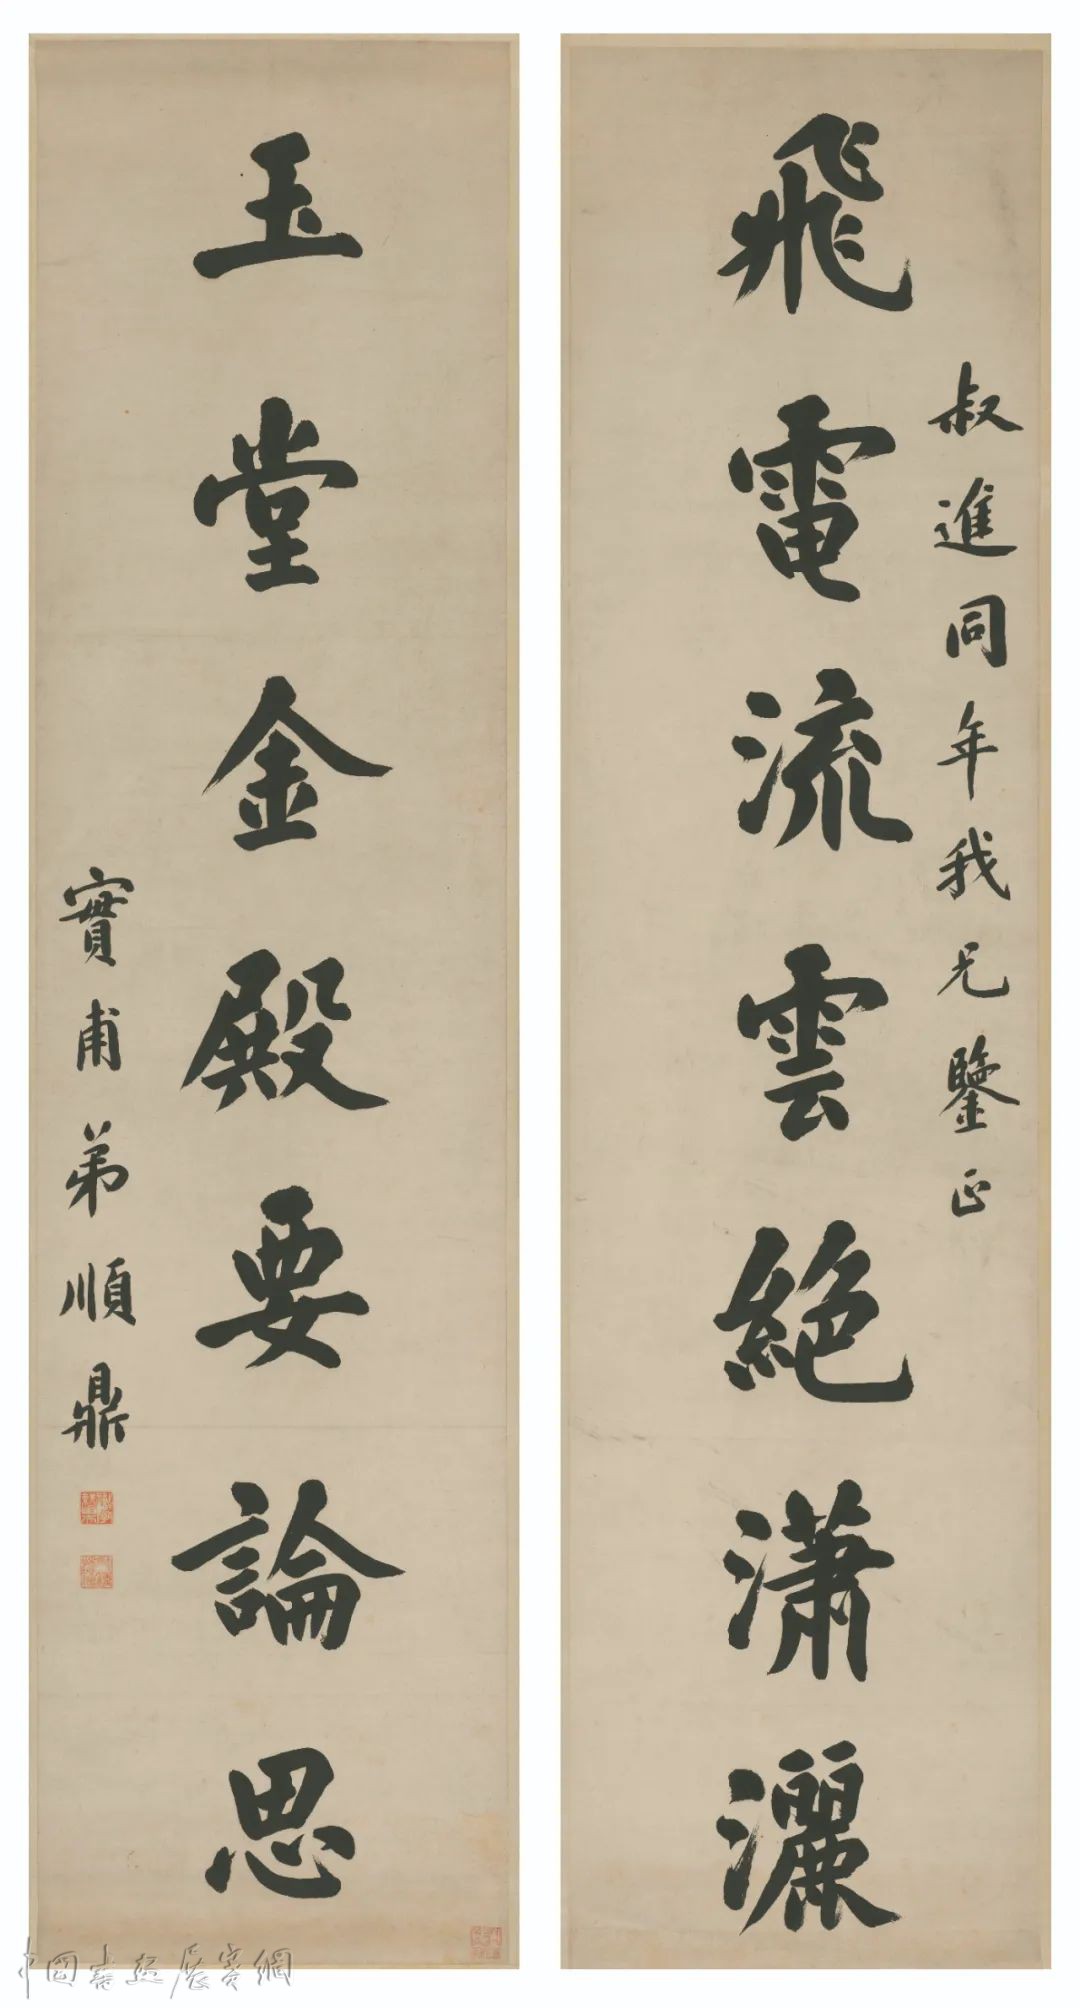 飛電流雲絕瀟灑
叔進同年我兄鑒正
玉堂金殿要論思
實甫弟順鼎
中國書法展賽網